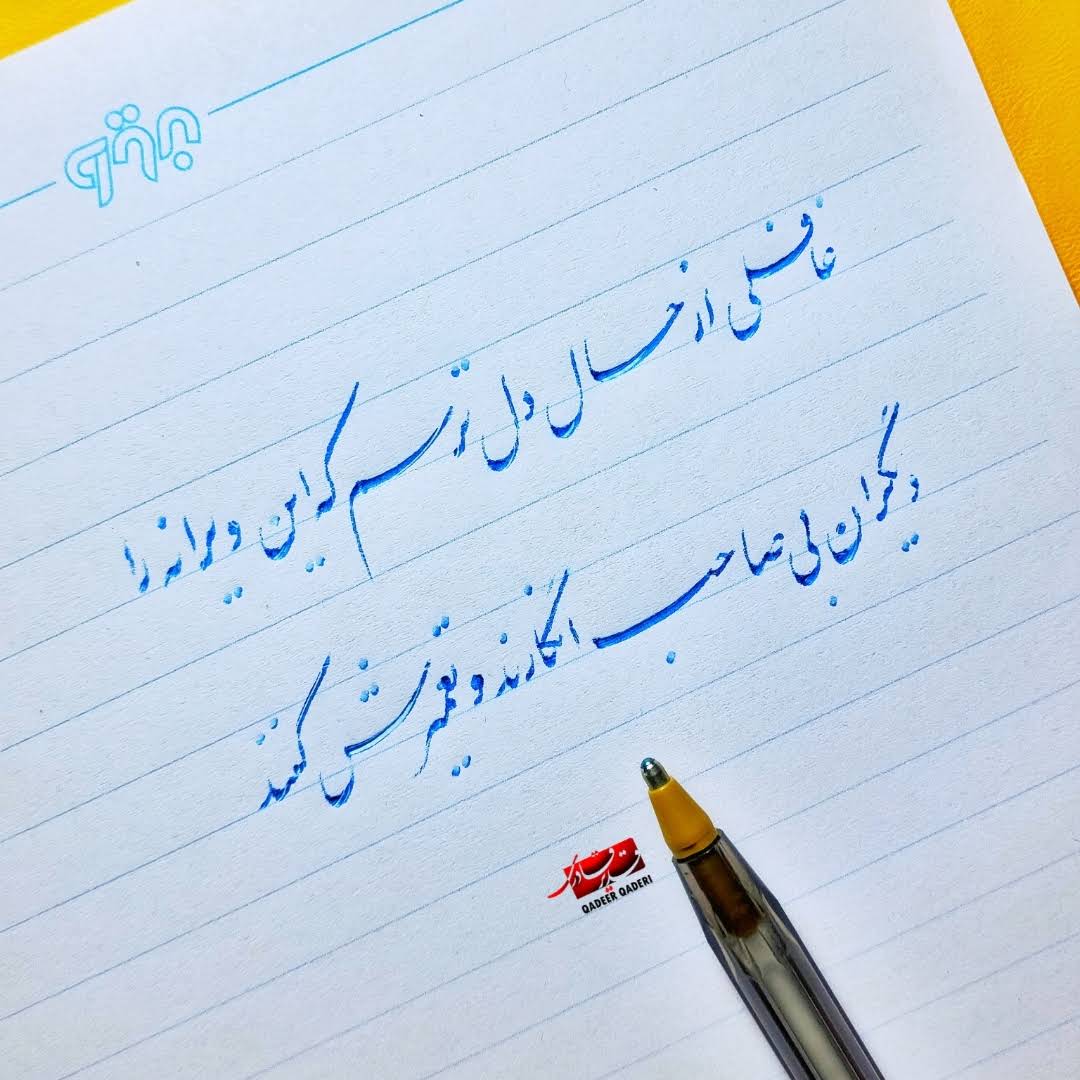 غافلی از حال دل ترسم که این ویرانه را
دیگران بی صاحب انگارند و تعمیرش کنند
QADEER QADERI